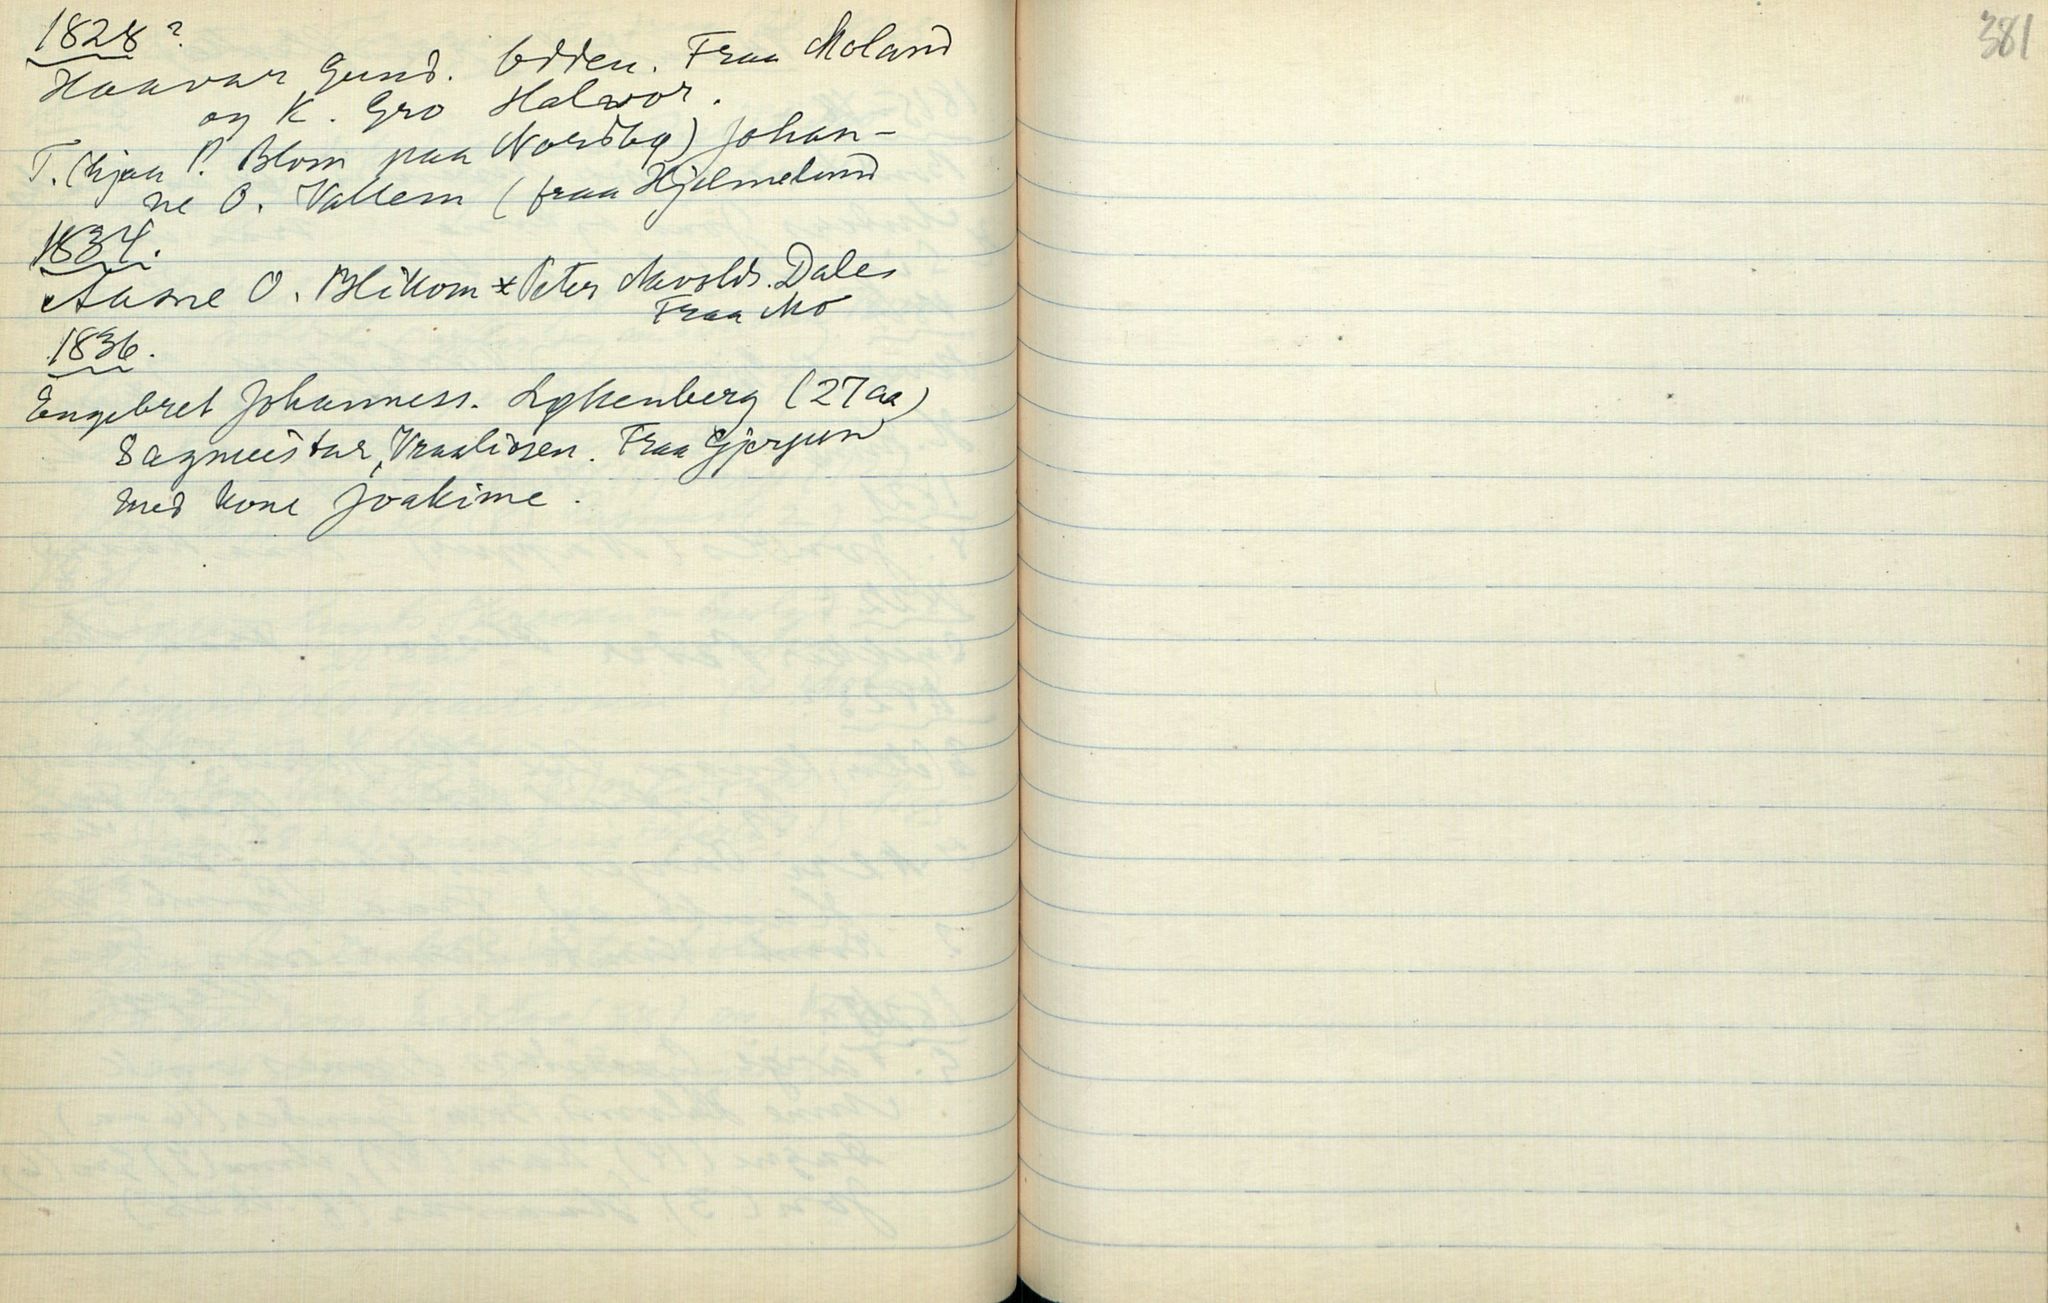 1828?
Haavar Gund. Odden. Fraa Moland
og K. Gro Halvor.
T. (hjaa P. Blom paa Nordbø) Johan-
ne O. Vattem (fraa Hjelmeland
1834.
Aasne O. Blikom x Peter Navolds. Dales
Fraa Mo
1836.
Engebret Johanness. Løkenberg (27 aa)
Sagmeistar, Vraaliosen. Fraa Gjerpen
med kone Joakime.
381